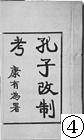 孔子改制
考
康有為署
④